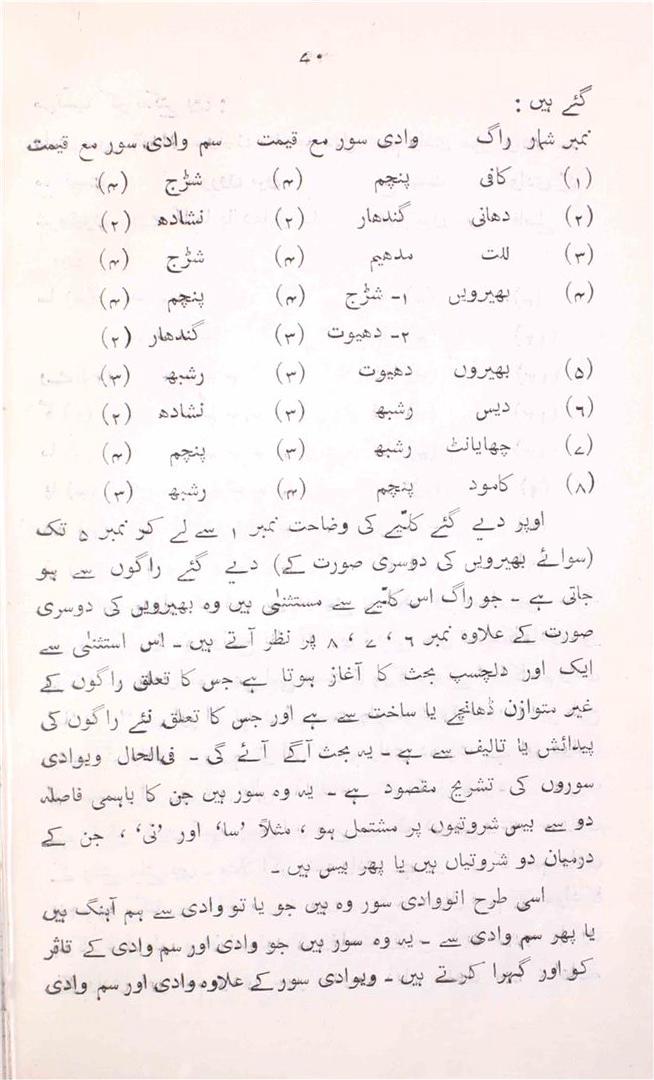 ۷۰
گئے ہیں :
نمبر شمار راگ وادی سور مع قیمت سم وادی سور مع قیمت
(۱) کافی پنچم (۴) شڑج (۴)
(۲) دھانی گندھار (۲) نشادھ (۲)
(۳) للت مدھیم (۴) شڑج (۴)
(۴) بھیرویں ۱- شڑج (۴) پنچم (۴)
۲- دھیوت (۳) گندھار (۲)
(۵) بھیروں دھیوت (۳) رشبھ (۳)
(۶) دیس رشبھ (۳) نشادھ (۲)
(۷) چھایانٹ رشبھ (۳) پنچم (۴)
(۸) کامود پنچم (۴) رشبھ (۳)
اوپر دیے گئے کلیّے کی وضاحت نمبر ۱ سے لے کر نمبر ۵ تک
(سوائے بھیرویں کی دوسری صورت کے) دیے گئے راگوں سے ہو
جاتی ہے - جو راگ اس کلیّے سے مستثنیٰ ہیں وہ بھیرویں کی دوسری
صورت کے علاوہ نمبر ۶ ، ۷ ، ۸ پر نظر آتے ہیں - اس استثنیٰ سے
ایک اور دلچسپ بحث کا آغاز ہوتا ہے جس کا تعلق راگوں کے
غیر متوازن ڈھانچے یا ساخت سے ہے اور جس کا تعلق نئے راگوں کی
پیدائش یا تالیف سے ہے - یہ بحث آگے آئے گی - فی الحال ویوادی
سوروں کی تشریح مقصود ہے - یہ وہ سور ہیں جن کا باہمی فاصلہ
دو سے بیس شروتیوں پر مشتمل ہو ، مثلاً ’سا‘ اور ’نی‘ ، جن کے
درمیان دو شروتیاں ہیں یا پھر بیس ہیں -
اسی طرح انووادی سور وہ ہیں جو یا تو وادی سے ہم آہنگ ہیں
یا پھر سم وادی سے - یہ وہ سور ہیں جو وادی اور سم وادی کے تاثر
کو اور گہرا کرتے ہیں - ویوادی سور کے علاوہ وادی اور سم وادی